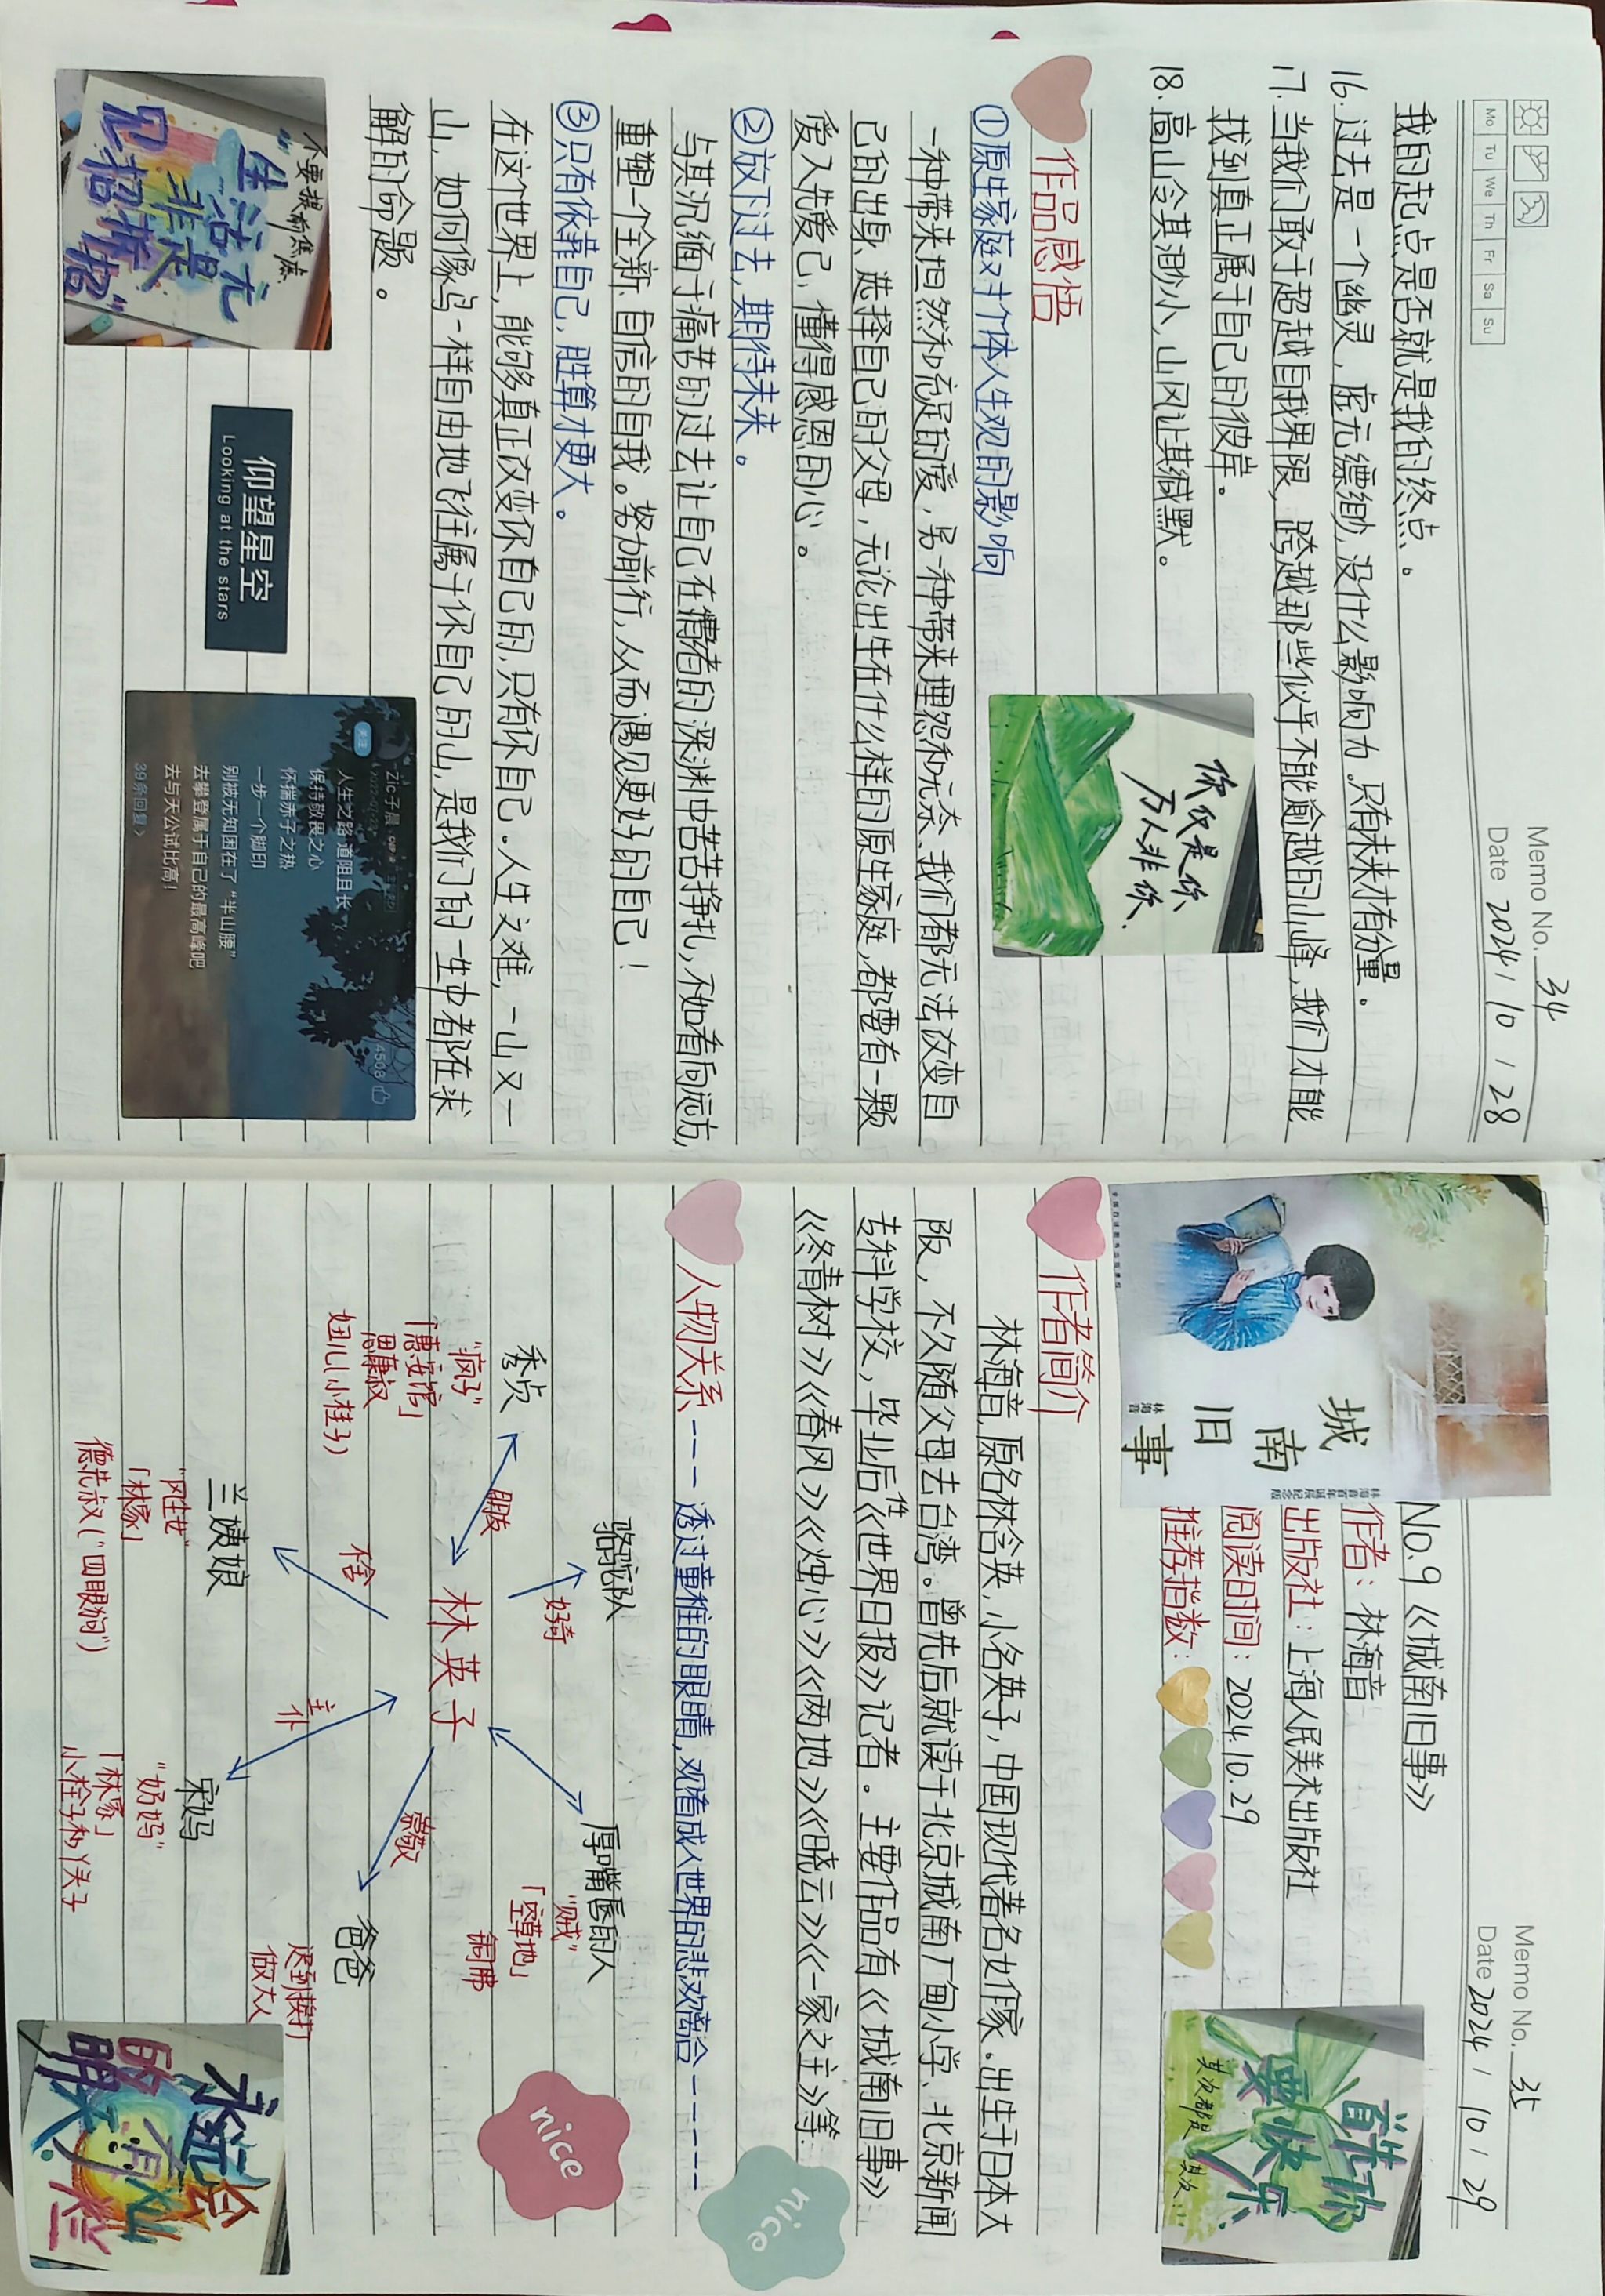 Memo No. 34
Mo Tu We Th Fr Sa Su
Date 2024 / 10 / 28
我的起点是否就是我的终点。
16. 过去是一个幽灵，虚无缥缈，没什么影响力。只有未来才有分量。
17. 当我们敢于超越自我界限，跨越那些似乎不能逾越的山峰，我们才能
找到真正属于自己的彼岸。
18. 高山令其渺小，山风让其缄默。
你仅是你
万人非你、
作品感悟
①原生家庭对个体人生观的影响
一种带来坦然和充足的爱，另一种带来埋怨和无奈、我们都无法改变自
己的出身、选择自己的父母，无论出生在什么样的原生家庭，都要有一颗
爱人先爱己、懂得感恩的心。
②放下过去，期待未来。
与其沉缅于痛苦的过去让自己在情绪的深渊中苦苦挣扎，不如看向远方，
重塑一个全新、自信的自我。努力前行，从而遇见更好的自己！
③只有依靠自己，胜算才更大。
在这个世界上，能够真正改变你自己的，只有你自己。人生之难，一山又一
山，如何像鸟一样自由地飞往属于你自己的山，是我们的一生中都在求
解的命题。
不要提前焦虑
生活无
非是
见招拆招"
仰望星空
Looking at the stars
Zic子晨
关注
4508
人生之路 道阻且长
保持敬畏之心
怀揣赤子之热
一步一个脚印
别被无知困在了“半山腰”
去攀登属于自己的最高峰吧
去与天公试比高！
39条回复>
Memo No. 35
Date 2024 / 10 / 29
城
南
旧
事
林海音
林海音百年诞辰纪念版
No. 9 《城南旧事》
作者：林海音
出版社：上海人民美术出版社
阅读时间：2024.10.29
推荐指数：
首先你
要快乐
其次都是其次
作者简介
林海音，原名林含英，小名英子，中国现代著名女作家。出生于日本大
阪，不久随父母去台湾。曾先后就读于北京城南厂甸小学、北京新闻
专科学校，毕业后任《世界日报》记者。主要作品有《城南旧事》
《冬青树》《春风》《烛心》《两地》《晓云》《一家之主》等.
人物关系--- 透过童稚的眼睛，观看成人世界的悲欢离合-----
骆驼队
好奇
厚嘴唇的人
“贼”
「空草地」
铜佛
秀贞
“疯子”
「惠安馆」
思康叔
妞儿（小桂子）
朋友
林英子
崇敬
爸爸
迟到挨打
做大人
兰姨娘
「林家」
德先叔（“四眼狗”）
主仆
宋妈
“奶妈”
「林家」
小栓子和丫头子
nice
nice
永远会
有灿烂
的明天